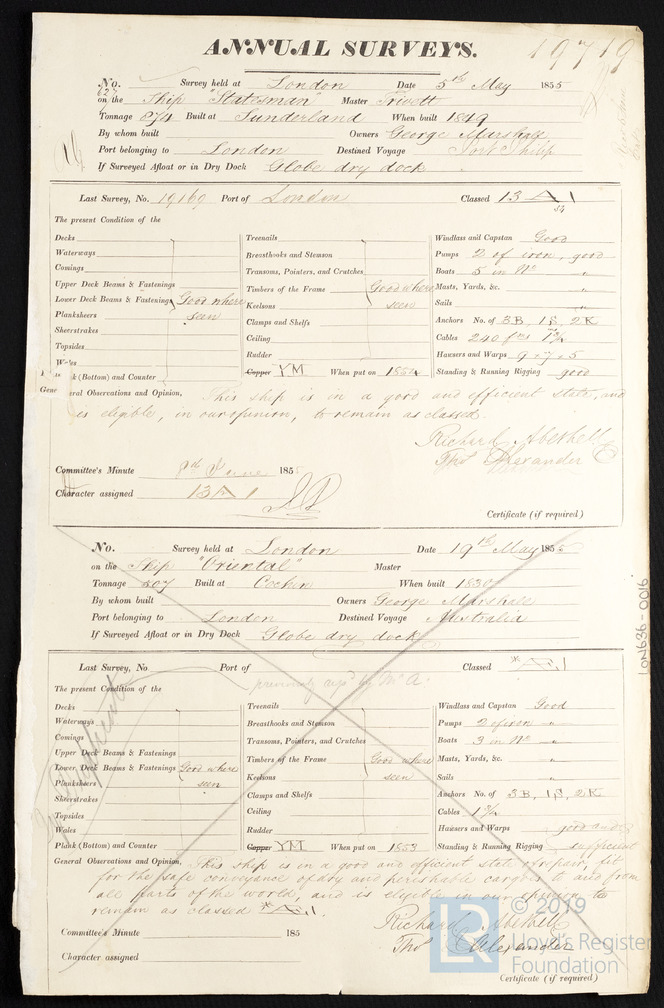 ANNUAL SURVEYS.
19719
No. Survey held at London Date 5th May 1855
on the Ship "Statesman" Master Trivett
Tonnage 874 Built at Sunderland When built 1849
By whom built Owners George Marshall
Port belonging to London Destined Voyage Port Philip
If Surveyed Afloat or in Dry Dock Globe dry dock
Last Survey, No. 19169 Port of London Classed 13 A 1
The present Condition of the
Decks Treenails Windlass and Capstan Good
Waterways Breasthooks and Stemson Pumps 2 of iron, good
Comings Transoms, Pointers, and Crutches Boats 5 in No "
Upper Deck Beams & Fastenings Timbers of the Frame Good where Masts, Yards, &c. "
Lower Deck Beams & Fastenings Good where Keelsons seen Sails "
Planksheers seen Clamps and Shelfs Anchors No. of 3B, 1S, 2K
Sheerstrakes Ceiling Cables 240 fms 1¾
Topsides Rudder Hawsers and Warps 9 . 7 . 5
Wales Copper YM When put on 1854 Standing & Running Rigging good
k (Bottom) and Counter
General Observations and Opinion, This ship is in a good and efficient state, and
is eligible, in our opinion, to remain as classed.
Richard Abethell
Thos Alexander
Committee's Minute 8th June 1855
Character assigned 13 A 1
Certificate (if required)
No. Survey held at London Date 19th May 185
on the Ship "Oriental" Master
Tonnage 507 Built at Cochin When built 1830
By whom built Owners George Marshall
Port belonging to London Destined Voyage Australia
If Surveyed Afloat or in Dry Dock Globe dry dock
Last Survey, No. Port of Classed *Æ.1
previously repd by Mr A.
The present Condition of the
Decks Treenails Windlass and Capstan Good
Waterways Breasthooks and Stemson Pumps 2 of iron "
Comings Transoms, Pointers, and Crutches Boats 3 in No "
Upper Deck Beams & Fastenings Timbers of the Frame Good where Masts, Yards, &c. "
Lower Deck Beams & Fastenings Good where Keelsons seen Sails "
Planksheers seen Clamps and Shelfs Anchors No. of 3B, 1S, 2K
Sheerstrakes Ceiling Cables 1¾
Topsides Rudder Hawsers and Warps good and
Wales Copper YM When put on 1853 Standing & Running Rigging sufficient
Plank (Bottom) and Counter
General Observations and Opinion, This ship is in a good and efficient state of repair, fit
for the safe conveyance of dry and perishable cargoes to and from
all parts of the world, and is eligible in our opinion to
remain as classed *Æ.1
Richard Abethell
Thos Alexander
Committee's Minute 185
Character assigned
Certificate (if required)
LON636-0016
LR © 2019
Lloyd's Register
Foundation